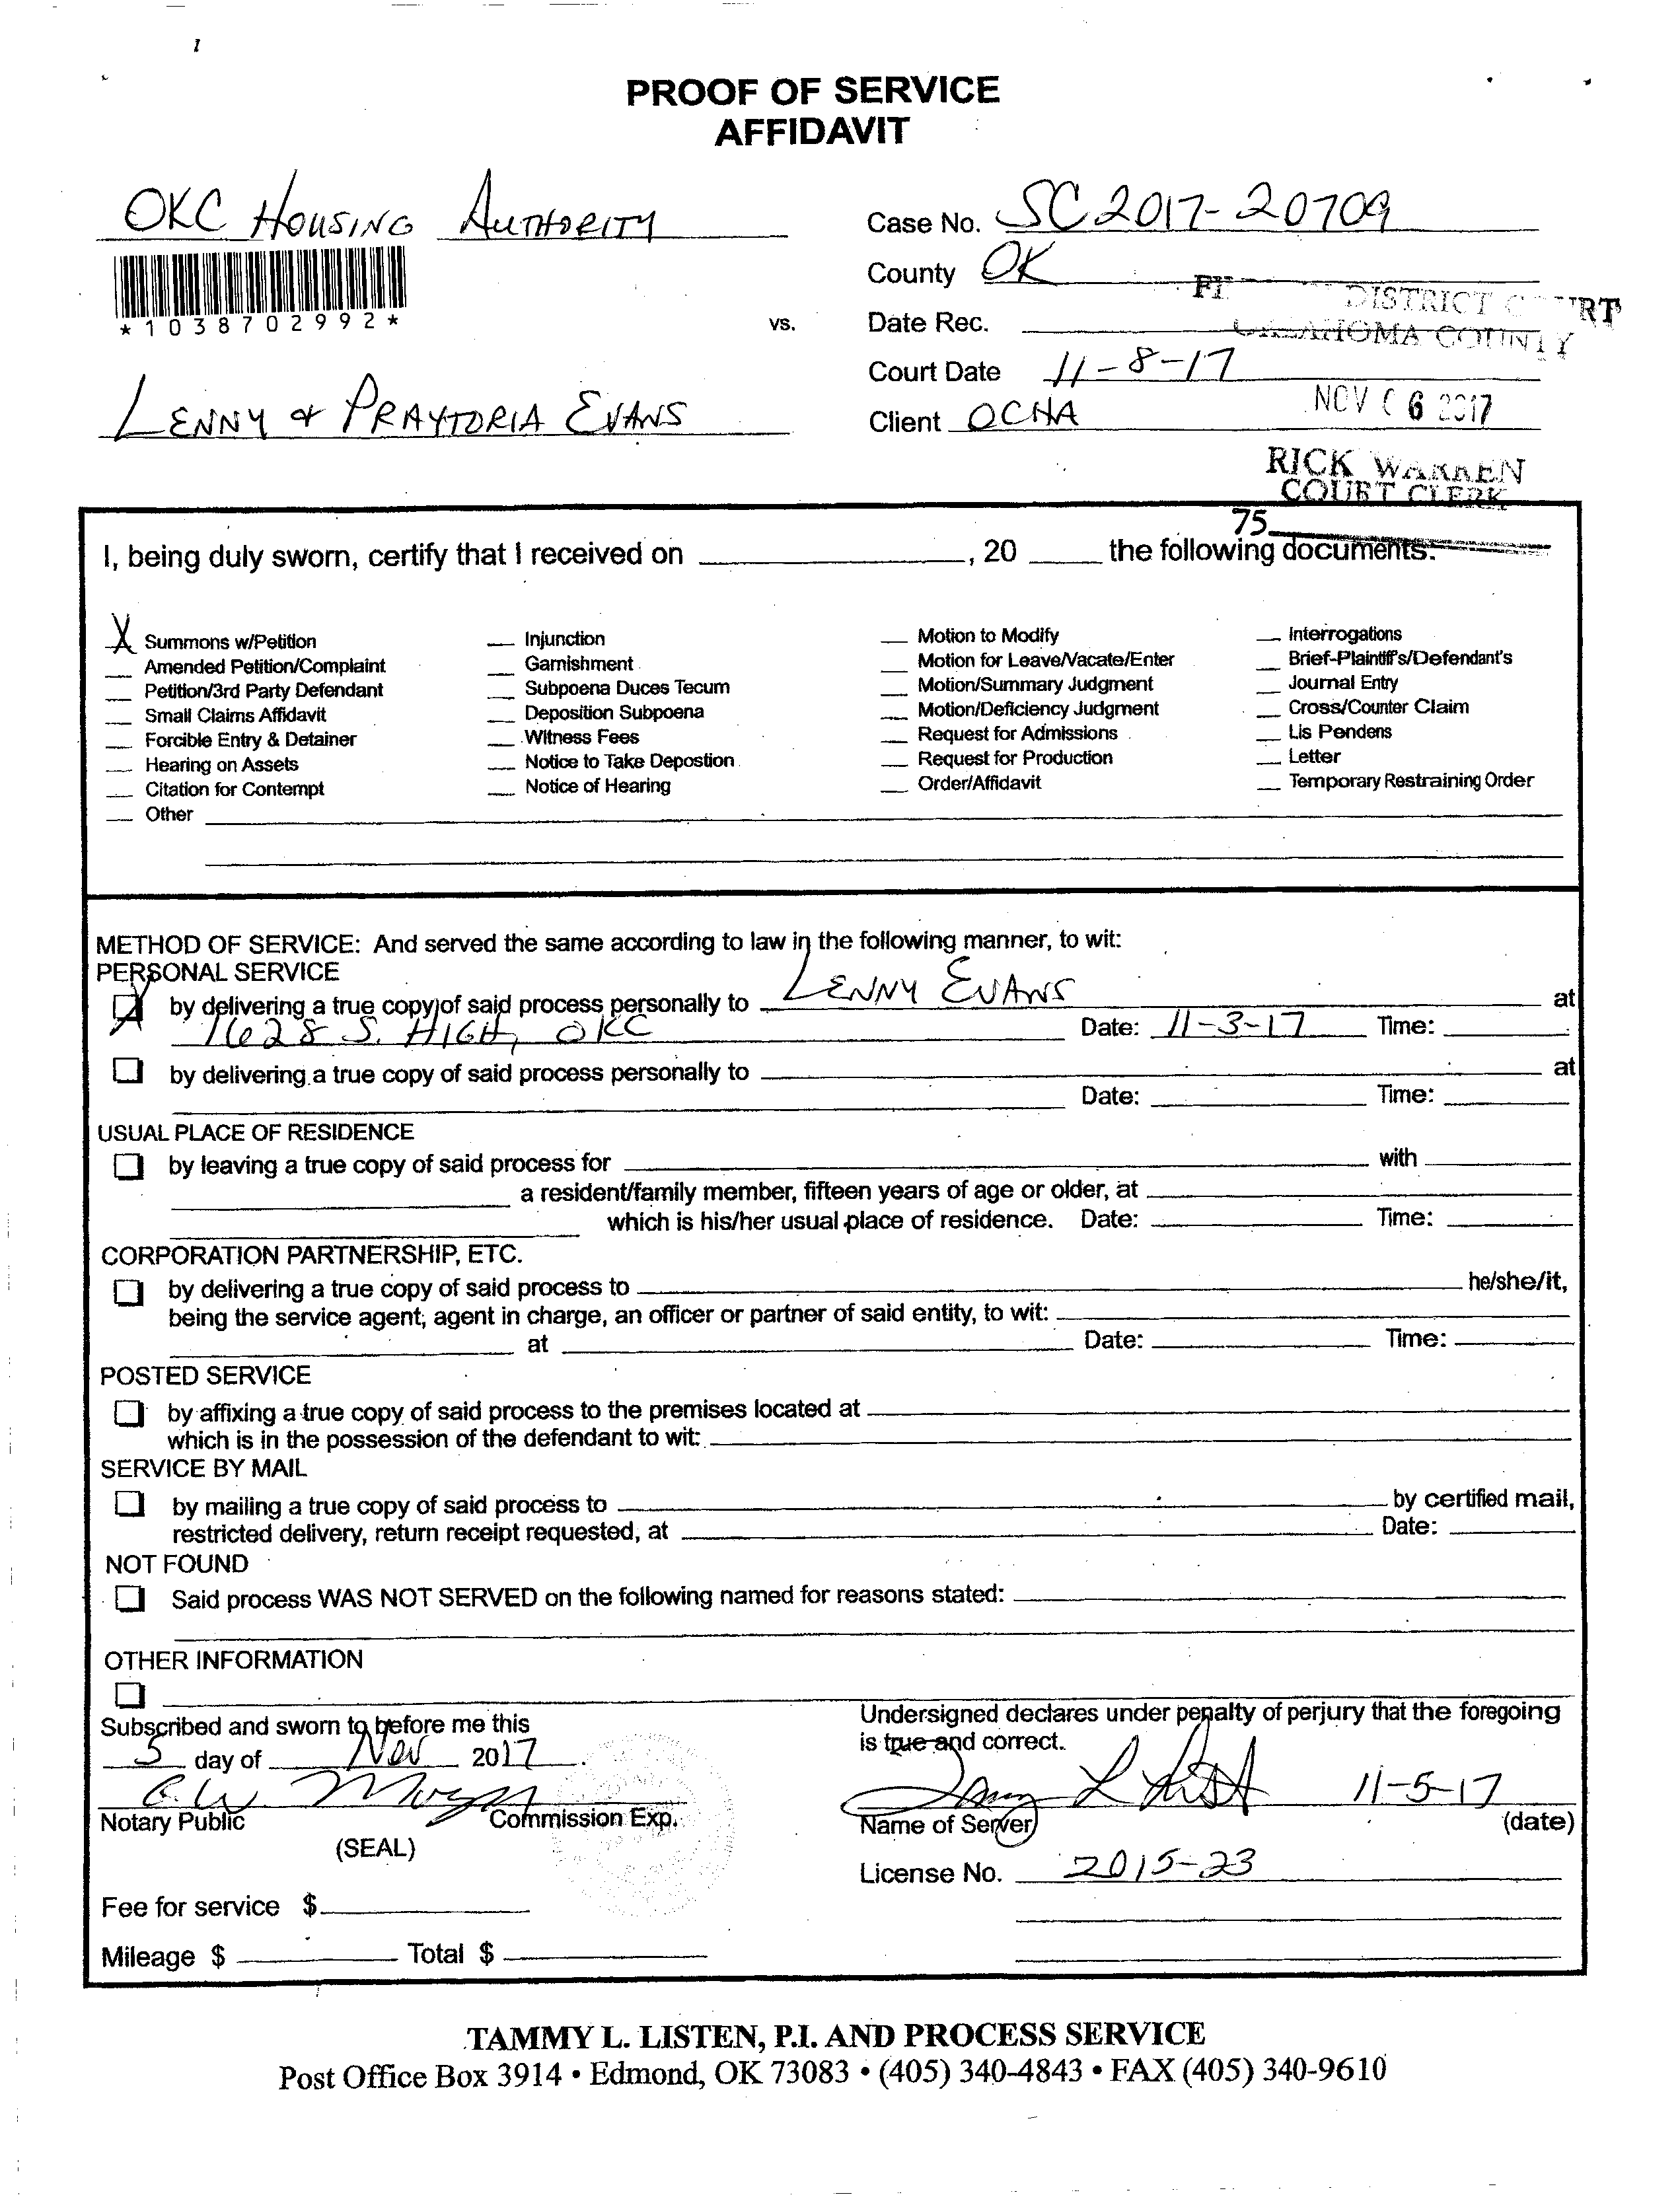 PROOF OF SERVICE
AFFIDAVIT
OKC HOUSING AUTHORITY
Case No. SC2017-20709
County OK
*1038702992*
vs.
DISTRICT COURT
OKLAHOMA COUNTY
Date Rec.
Court Date 11-8-17
NOV 6 2017
LENNY & PRAYTORIA EVANS
Client OCHA
RICK WARREN
COURT CLERK
75
I, being duly sworn, certify that I received on ____, 20 ____ the following documents:
X Summons w/Petition
Amended Petition/Complaint
Petition/3rd Party Defendant
Small Claims Affidavit
Forcible Entry & Detainer
Hearing on Assets
Citation for Contempt
Other
Injunction
Garnishment
Subpoena Duces Tecum
Deposition Subpoena
Witness Fees
Notice to Take Depostion
Notice of Hearing
Motion to Modify
Motion for Leave/Vacate/Enter
Motion/Summary Judgment
Motion/Deficiency Judgment
Request for Admissions
Request for Production
Order/Affidavit
Interrogations
Brief-Plaintiff's/Defendant's
Journal Entry
Cross/Counter Claim
Lis Pendens
Letter
Temporary Restraining Order
METHOD OF SERVICE: And served the same according to law in the following manner, to wit:
PERSONAL SERVICE
X by delivering a true copy of said process personally to LENNY EVANS at
1628 S. HIGH, OKC Date: 11-3-17 Time:
by delivering a true copy of said process personally to ____ at
Date: ____ Time:
USUAL PLACE OF RESIDENCE
by leaving a true copy of said process for ____ with
a resident/family member, fifteen years of age or older, at
which is his/her usual place of residence. Date: ____ Time:
CORPORATION PARTNERSHIP, ETC.
by delivering a true copy of said process to ____ he/she/it,
being the service agent, agent in charge, an officer or partner of said entity, to wit:
at ____ Date: ____ Time:
POSTED SERVICE
by affixing a true copy of said process to the premises located at
which is in the possession of the defendant to wit:
SERVICE BY MAIL
by mailing a true copy of said process to ____ by certified mail,
restricted delivery, return receipt requested, at ____ Date:
NOT FOUND
Said process WAS NOT SERVED on the following named for reasons stated:
OTHER INFORMATION
Subscribed and sworn to before me this
5 day of Nov 2017
Notary Public Commission Exp.
(SEAL)
Fee for service $
Mileage $ ____ Total $
Undersigned declares under penalty of perjury that the foregoing
is true and correct.
11-5-17
Name of Server (date)
License No. 2015-23
TAMMY L. LISTEN, P.I. AND PROCESS SERVICE
Post Office Box 3914 • Edmond, OK 73083 • (405) 340-4843 • FAX (405) 340-9610